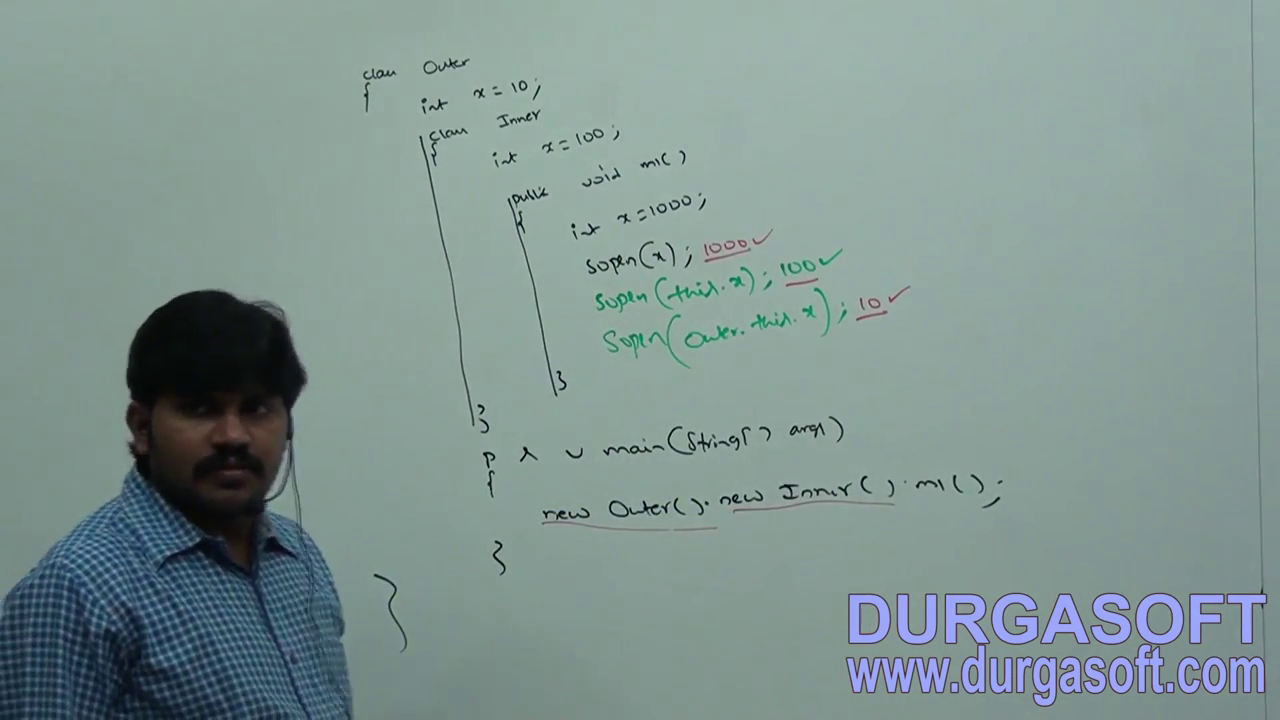 class Outer
{
int x = 10;
class Inner
{
int x = 100;
public void m1()
{
int x = 1000;
sopln(x); 1000 ✓
sopln(this.x); 100 ✓
sopln(Outer.this.x); 10 ✓
}
}
p s v main(String[] args)
{
new Outer().new Inner().m1();
}
}
DURGASOFT
www.durgasoft.com